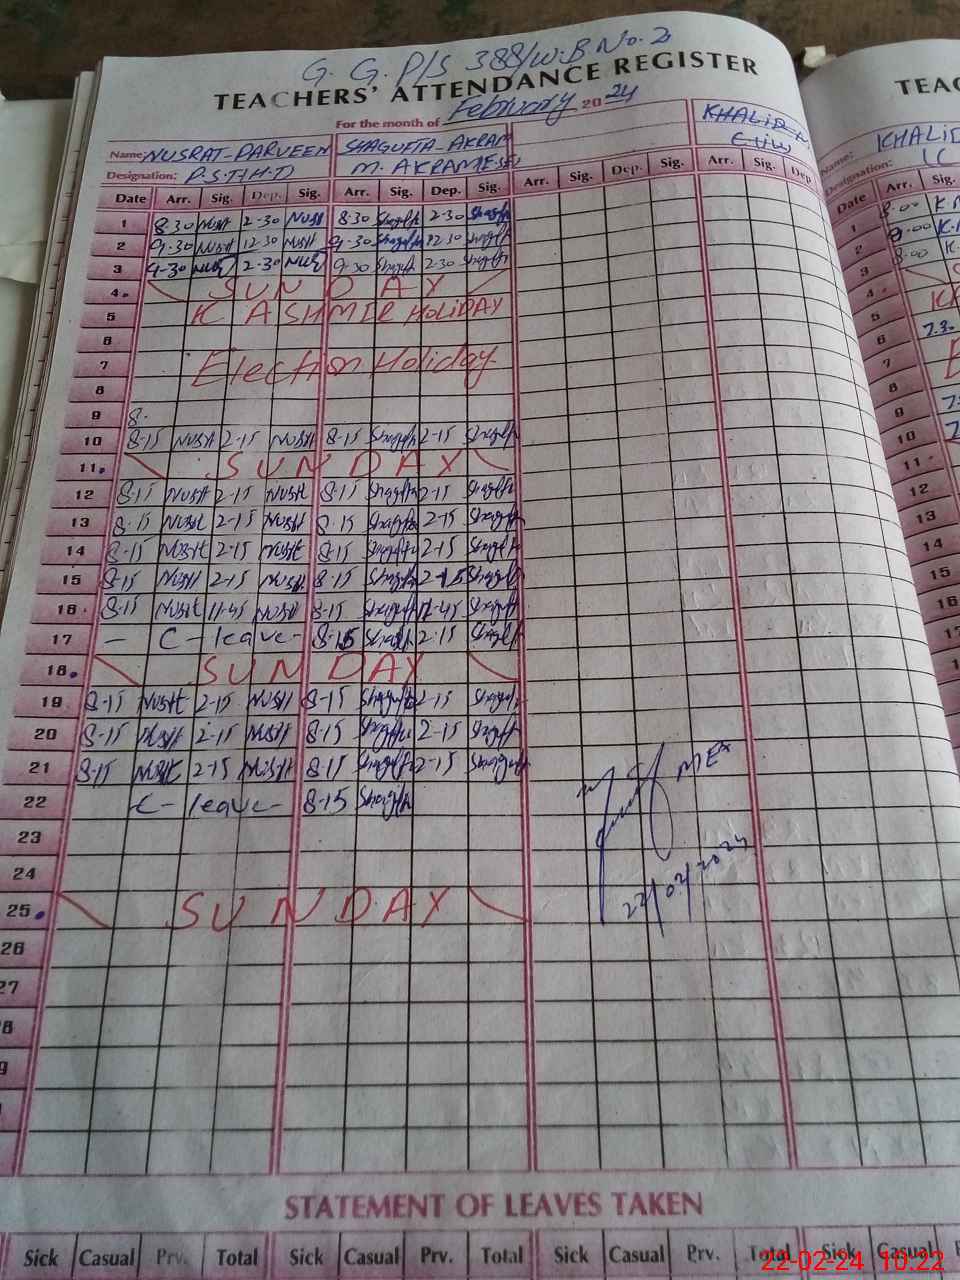 G. G. P/S 388/W.B No. 2
TEACHERS' ATTENDANCE REGISTER
For the month of February 2024
Name: NUSRAT-PARVEEN SHAGUFTA-AKRAM KHALID
Designation: P.S.T.H.T M. AKRAM
Date Arr. Sig. Dep. Sig. Arr. Sig. Dep. Sig. Arr. Sig. Dep. Sig. Arr. Sig. Dep
1 8-30 Nusrt 2-30 Nusrt 8-30 Shagufta 2-30 Shagufta
2 9-30 Nusrt 12-30 Nusrt 9-30 Shagufta 12-30 Shagufta
3 9-30 Nusrt 2-30 Nusrt 9-30 Shagufta 2-30 Shagufta
4 SUNDAY
5 KASHMIR HOLIDAY
6
7 Election Holiday
8
9 8-
10 8-15 Nusrt 2-15 Nusrt 8-15 Shagufta 2-15 Shagufta
11 SUNDAY
12 8-15 Nusrt 2-15 Nusrt 8-15 Shagufta 2-15 Shagufta
13 8-15 Nusrt 2-15 Nusrt 8-15 Shagufta 2-15 Shagufta
14 8-15 Nusrt 2-15 Nusrt 8-15 Shagufta 2-15 Shagufta
15 8-15 Nusrt 2-15 Nusrt 8-15 Shagufta 2-15 Shagufta
16 8-15 Nusrt 11-45 Nusrt 8-15 Shagufta 11-45 Shagufta
17 - C-leave- 8-15 Shagufta 2-15 Shagufta
18 SUNDAY
19 8-15 Nusrt 2-15 Nusrt 8-15 Shagufta 2-15 Shagufta
20 8-15 Nusrt 2-15 Nusrt 8-15 Shagufta 2-15 Shagufta
21 8-15 Nusrt 2-15 Nusrt 8-15 Shagufta 2-15 Shagufta
22 C-leave- 8-15 Shagufta
MEA
22/02/2024
23
24
25 SUNDAY
26
27
STATEMENT OF LEAVES TAKEN
Sick Casual Prv. Total Sick Casual Prv. Total Sick Casual Prv. Total Sick Casual
22-02-24 10:22
TEAC
Name: KHALID
Designation:
Date Arr. Sig.
1 8-00
2 9-00
3 8-00
4
5
6 7.30
7
8
9
10
11
12
13
14
15
16